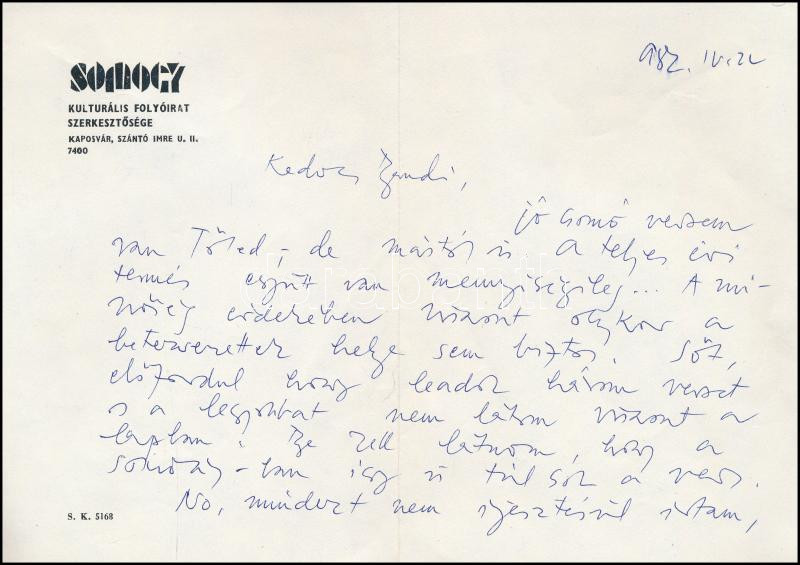 SOMOGY
KULTURÁLIS FOLYÓIRAT
SZERKESZTŐSÉGE
KAPOSVÁR, SZÁNTÓ IMRE U. 11.
7400
982. IV. 22
Kedves Bandi,
jó csomó versem
van Tőled, de mástól is. A teljes évi
termés együtt van mennyiségileg... A mi-
nőség érdekében viszont olykor a
betervezettek helye sem biztos. Sőt,
előfordul hogy leadok három verset
s a legjobbat nem látom viszont a
lapban. Be kell látnom, hogy a
Somogy-ban így is túl sok a vers.
No, mindezt nem ijesztésül írtam,
S. K. 5168